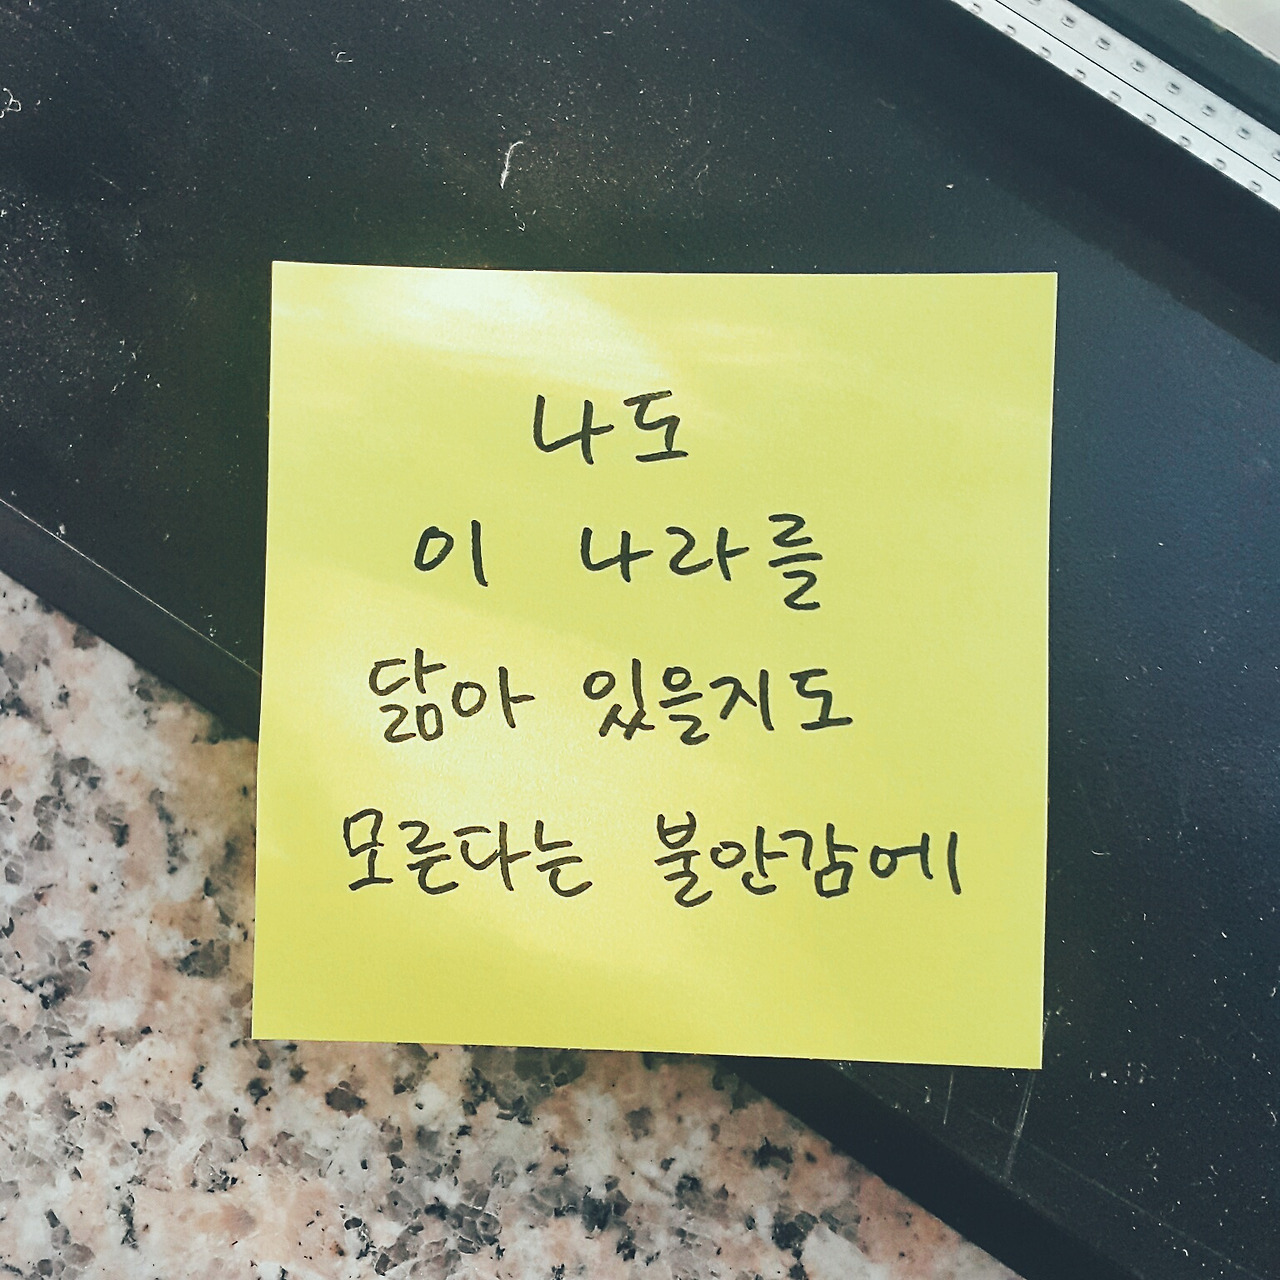 나도
이 나라를
닮아 있을지도
모른다는 불안감에